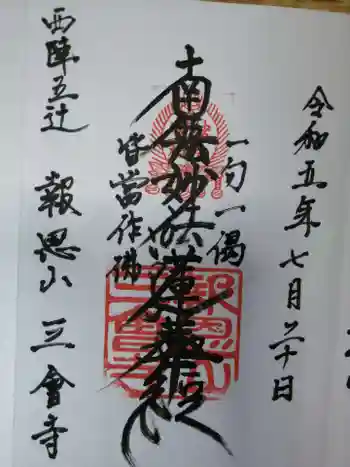 令和五年七月二十日
一句一偈
南無妙法蓮華経
皆當作佛
西陣五辻
報恩山三會寺